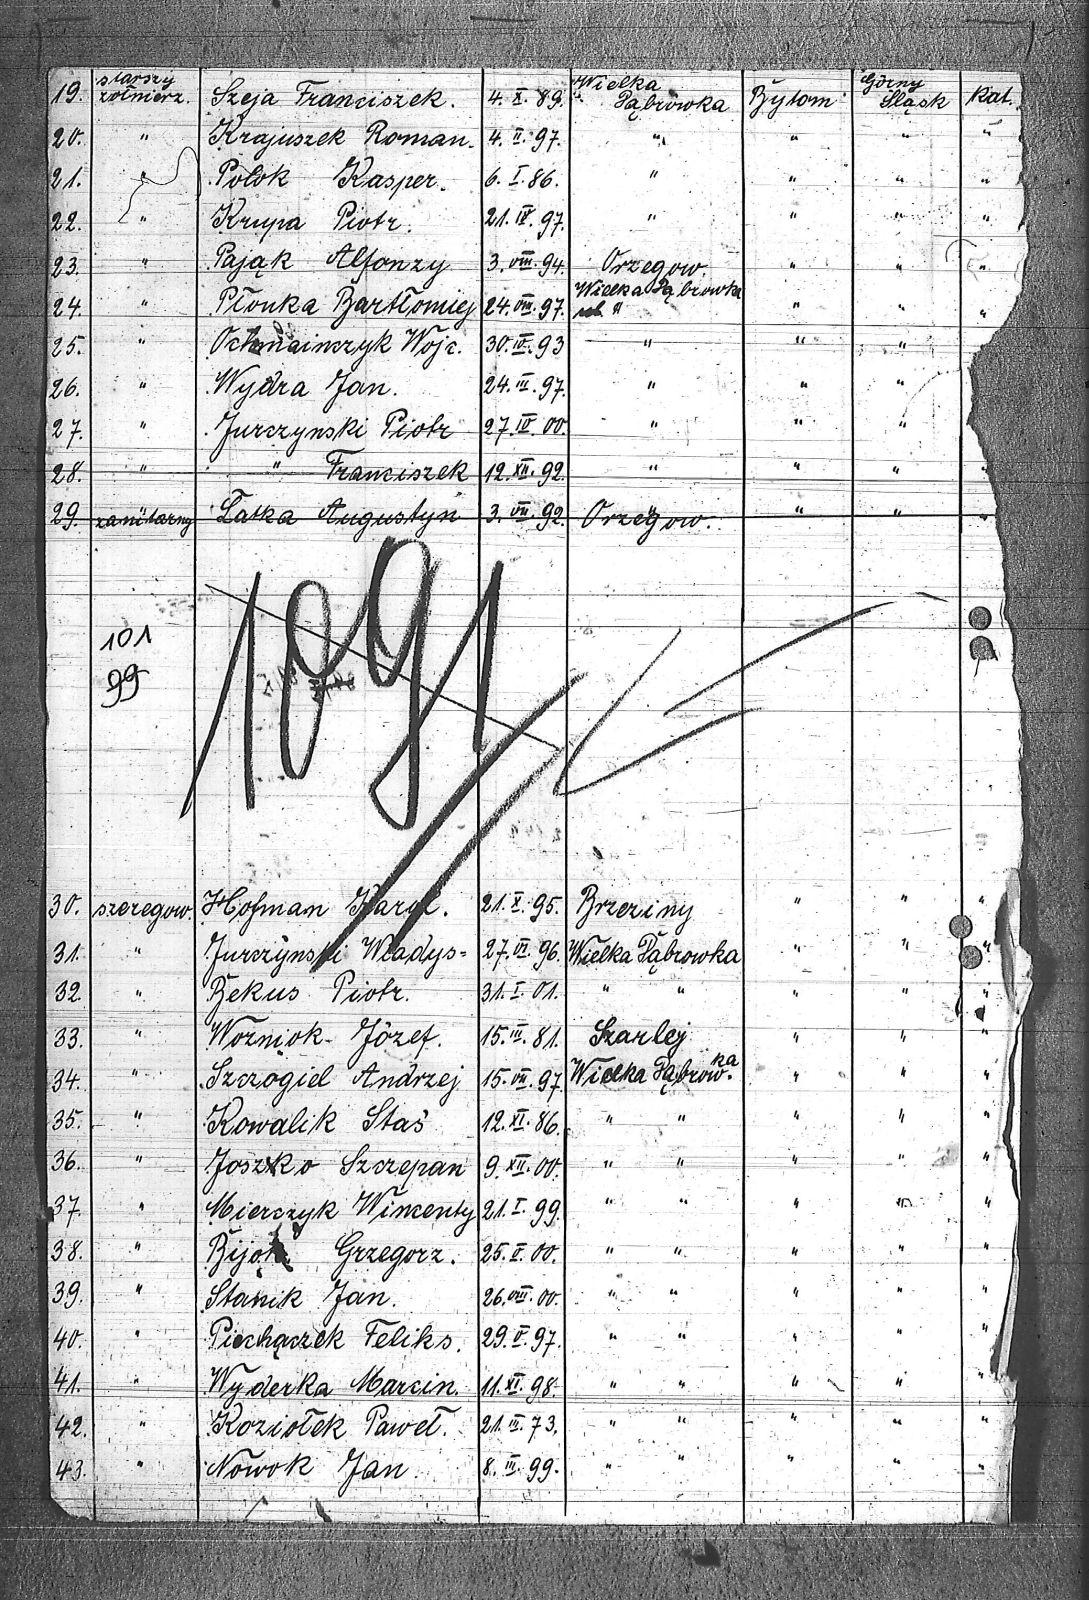 19. starszy żołnierz. Szeja Franciszek. 4. X. 89. Wielka Dąbrówka Bytom Górny Śląsk kat.
20. " Krajuszek Roman. 4. II. 97. " " " "
21. " Polok Kasper. 6. I. 86. " " " "
22. " Krupa Piotr. 21. IX. 97. " " " "
23. " Pająk Alfonzy 3. VIII. 94. Orzegow. " " "
24. " Płonka Bartłomiej 24. VIII. 97. Wielka Dąbrowka " " "
25. " Wojc. 30. IV. 93 " " "
26. " Wydra Jan. 24. III. 97. " " "
27. " Jurczynski Piotr 27. IV. 00. " " "
28. " " Franciszek 12. XII. 92. " " " "
29. sanitarny Łatka Augustyn 3. VII. 92. Orzegow. " " "
1091
101
99
30. szeregow. Hofman Karol. 21. X. 95. Brzeziny " " "
31. " Jurczynski Władys= 27. VI. 96. Wielka Dąbrowka " " "
32. " Bekus Piotr. 31. I. 01. " " " " "
33. " Wozniok Józef. 15. III. 81. Szarlej " " "
34. " Szczogiel Andrzej 15. VII. 97. Wielka Dąbrowka. " " "
35. " Kowalik Staś 12. XI. 86. " " " " "
36. " Joszko Szczepan 9. XII. 00. " " " " "
37. " Mierczyk Wincenty 21. I. 99. " " " " "
38. " Grzegorz. 25. V. 00. " " " " "
39. " Stanik Jan. 26. VIII. 00. " " " " "
40. " Piechaczek Feliks. 29. V. 97. " " " " "
41. " Wyderka Marcin. 11. XI. 98. " " " " "
42. " Koziołek Paweł. 21. III. 73. " " " " "
43. " Nowok Jan. 8. III. 99. " " " " "